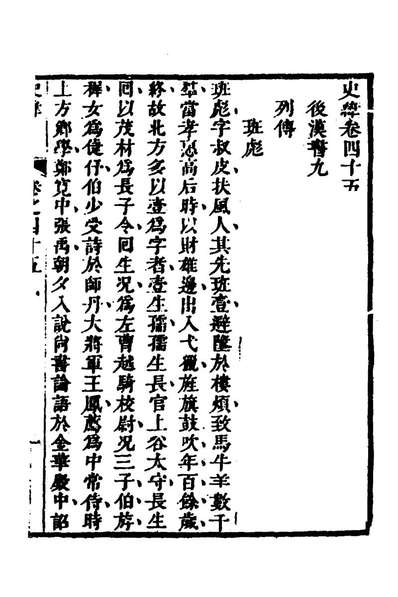 史緯卷四十五
後漢書九
列傳
班彪
班彪字叔皮扶風人其先班壹避墜於樓煩致馬牛羊數千
羣當孝惠高后時以財雄邊出入弋獵旌旗鼓吹年百餘歲
終故北方多以壹為字者壹生孺孺生長官上谷太守長生
回以茂材為長子令回生况為左曹越騎校尉况三子伯斿
穉女為倢伃伯少受詩於師丹大將軍王鳳薦為中常侍時
上方鄉學鄭寬中張禹朝夕入說尚書論語於金華殿中詔
史緯 卷之四十五 一